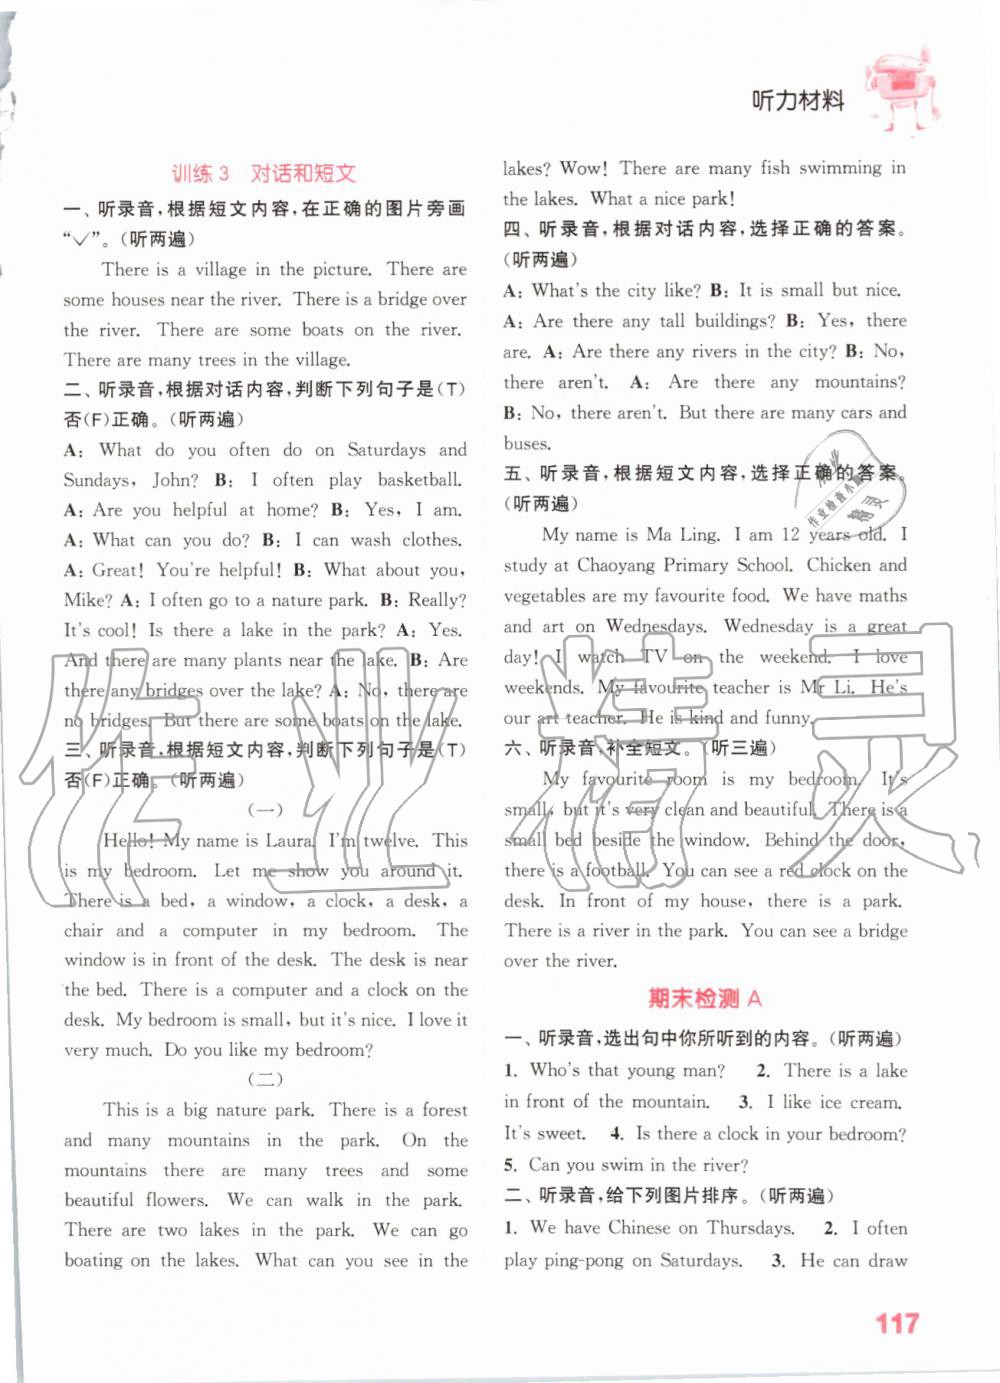 听力材料
训练3 对话和短文
一、听录音,根据短文内容,在正确的图片旁画
“✓”。(听两遍)
There is a village in the picture. There are
some houses near the river. There is a bridge over
the river. There are some boats on the river.
There are many trees in the village.
二、听录音,根据对话内容,判断下列句子是(T)
否(F)正确。(听两遍)
A: What do you often do on Saturdays and
Sundays, John? B: I often play basketball.
A: Are you helpful at home? B: Yes, I am.
A: What can you do? B: I can wash clothes.
A: Great! You're helpful! B: What about you,
Mike? A: I often go to a nature park. B: Really?
It's cool! Is there a lake in the park? A: Yes.
And there are many plants near the lake. B: Are
there any bridges over the lake? A: No, there are
no bridges. But there are some boats on the lake.
三、听录音,根据短文内容,判断下列句子是(T)
否(F)正确。(听两遍)
(一)
Hello! My name is Laura. I'm twelve. This
is my bedroom. Let me show you around it.
There is a bed, a window, a clock, a desk, a
chair and a computer in my bedroom. The
window is in front of the desk. The desk is near
the bed. There is a computer and a clock on the
desk. My bedroom is small, but it's nice. I love it
very much. Do you like my bedroom?
(二)
This is a big nature park. There is a forest
and many mountains in the park. On the
mountains there are many trees and some
beautiful flowers. We can walk in the park.
There are two lakes in the park. We can go
boating on the lakes. What can you see in the
lakes? Wow! There are many fish swimming in
the lakes. What a nice park!
四、听录音,根据对话内容,选择正确的答案。
(听两遍)
A: What's the city like? B: It is small but nice.
A: Are there any tall buildings? B: Yes, there
are. A: Are there any rivers in the city? B: No,
there aren't. A: Are there any mountains?
B: No, there aren't. But there are many cars and
buses.
五、听录音,根据短文内容,选择正确的答案。
(听两遍)
My name is Ma Ling. I am 12 years old. I
study at Chaoyang Primary School. Chicken and
vegetables are my favourite food. We have maths
and art on Wednesdays. Wednesday is a great
day! I watch TV on the weekend. I love
weekends. My favourite teacher is Mr Li. He's
our art teacher. He is kind and funny.
六、听录音,补全短文。(听三遍)
My favourite room is my bedroom. It's
small, but it's very clean and beautiful. There is a
small bed beside the window. Behind the door,
there is a football. You can see a red clock on the
desk. In front of my house, there is a park.
There is a river in the park. You can see a bridge
over the river.
期末检测A
一、听录音,选出句中你所听到的内容。(听两遍)
1. Who's that young man? 2. There is a lake
in front of the mountain. 3. I like ice cream.
It's sweet. 4. Is there a clock in your bedroom?
5. Can you swim in the river?
二、听录音,给下列图片排序。(听两遍)
1. We have Chinese on Thursdays. 2. I often
play ping-pong on Saturdays. 3. He can draw
117
作业精灵
作业检查小助手
精灵